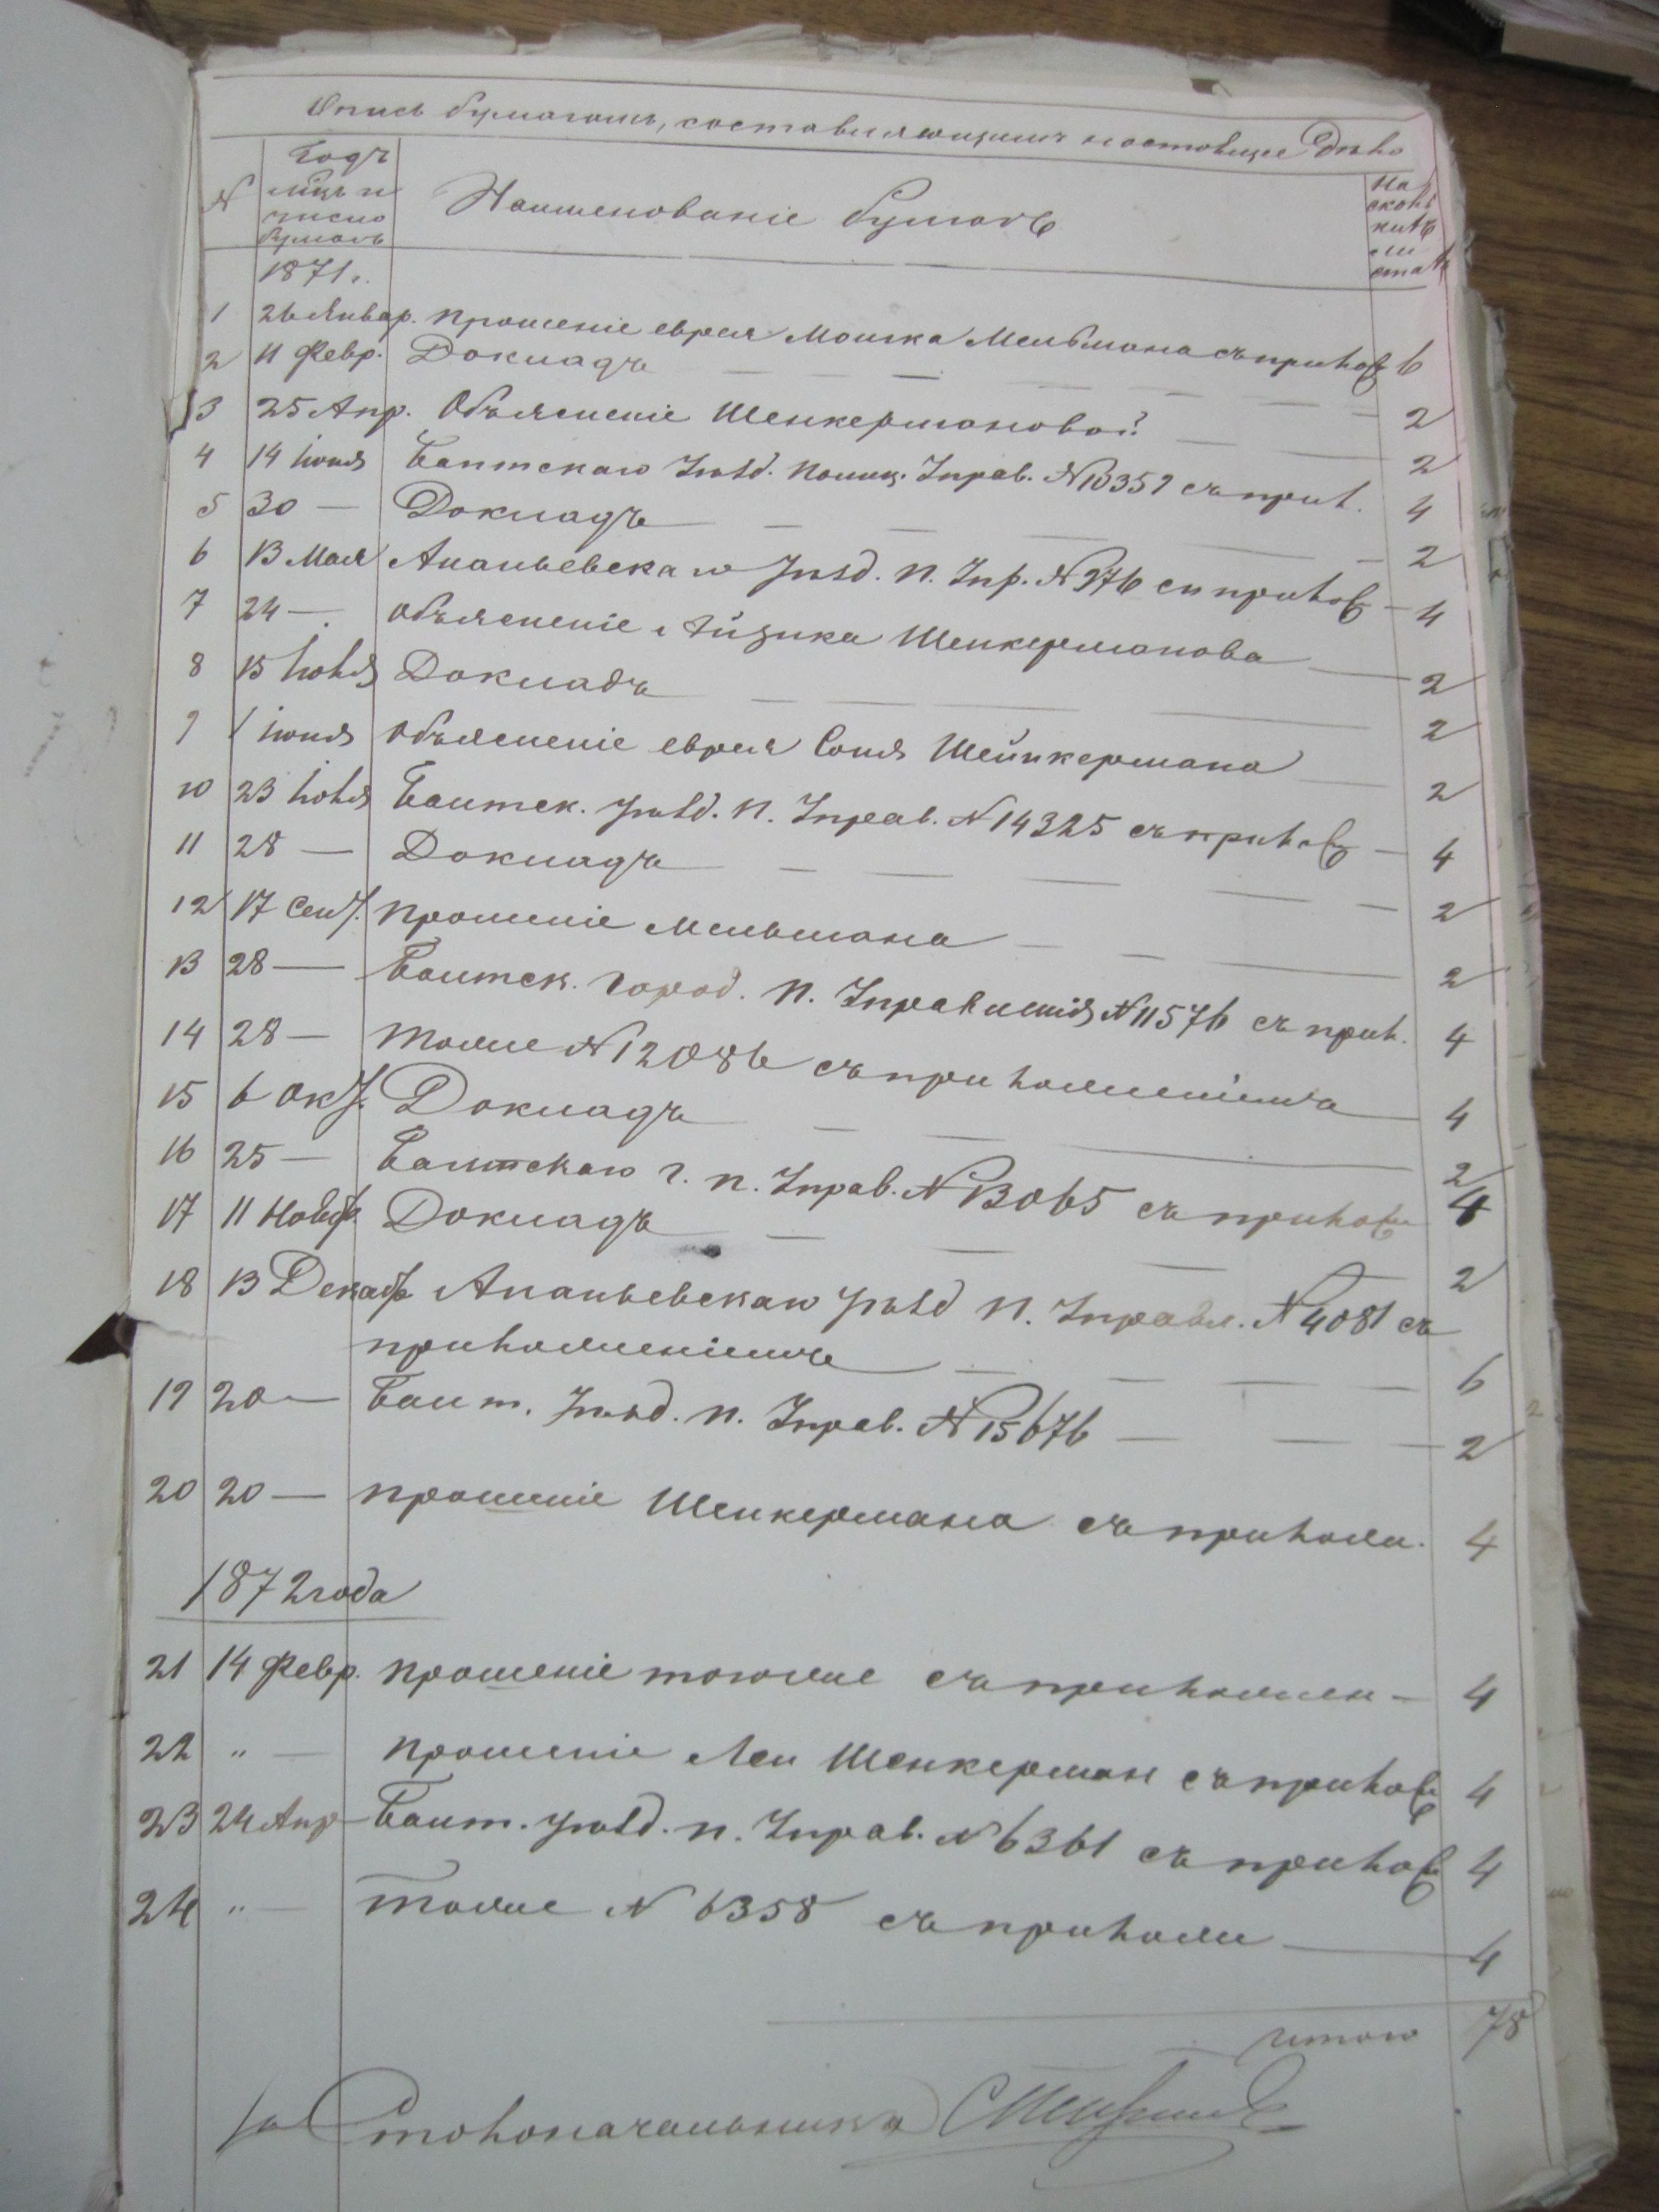 Опись бумагамъ, составляющимъ настоящее Дѣло
№
Годъ
мѣц. и
число
бумагъ
Наименованіе бумагъ
На
сколь
кихъ
ли
стахъ
1871 г.
1 26 Январ. Прошеніе еврея Мошка Мельмана съ прилож 6
2 11 Февр. Докладъ — 2
3 25 Апр. Объясненіе Шенкермановой — 2
4 14 Іюля Балтскаго Уѣзд. Полиц. Управ. № 10359 съ прил. 4
5 30 — Докладъ — 2
6 13 Мая Ананьевскаго Уѣзд. П. Упр. № 976 съ прилож — 4
7 24 — Объясненіе Айзика Шенкерманова — 2
8 15 Іюня Докладъ — 2
9 1 Іюля Объясненіе еврея Соля Шейнкермана — 2
10 23 Іюля Балтск. Уѣзд. П. Управ. № 14325 съ прилож — 4
11 28 — Докладъ — 2
12 17 Сент. Прошеніе Мельмана — 2
13 28 — Балтск. Город. П. Управленія № 11576 съ прил. 4
14 28 — Тоже № 12086 съ приложеніемъ — 4
15 6 Окт. Докладъ — 2
16 25 — Балтскаго г. п. Управ. № 13065 съ прилож 4
17 11 Нояб. Докладъ — 2
18 13 Декаб Ананьевскаго Уѣзд П. Управл. № 4081 съ
приложеніемъ — 6
19 20 — Балт. Уѣзд. П. Управ. № 15676 — 2
20 20 — Прошеніе Шенкермана съ прилож. 4
1872 года
21 14 Февр. Прошеніе тогоже съ приложен — 4
22 „ — Прошеніе Леи Шенкерман съ прилож 4
23 24 Апр — Балт. Уѣзд. п. Управ. № 6361 съ прилож 4
24 „ — Тоже № 6358 съ прилож — 4
итого 78
за Столоначальника